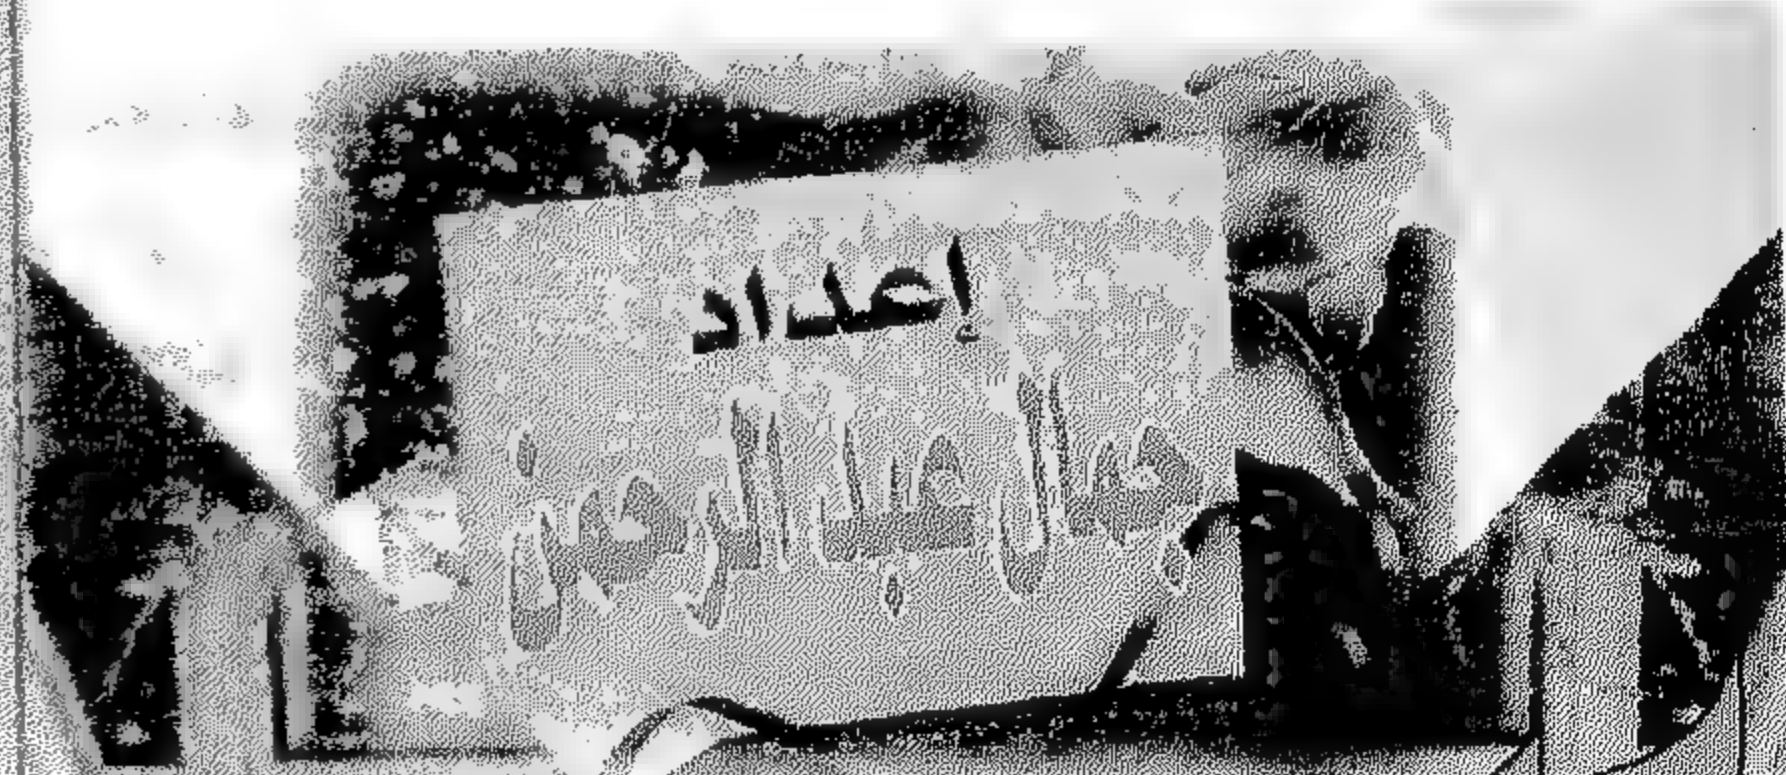 إعداد
جمال عبد الرحمن